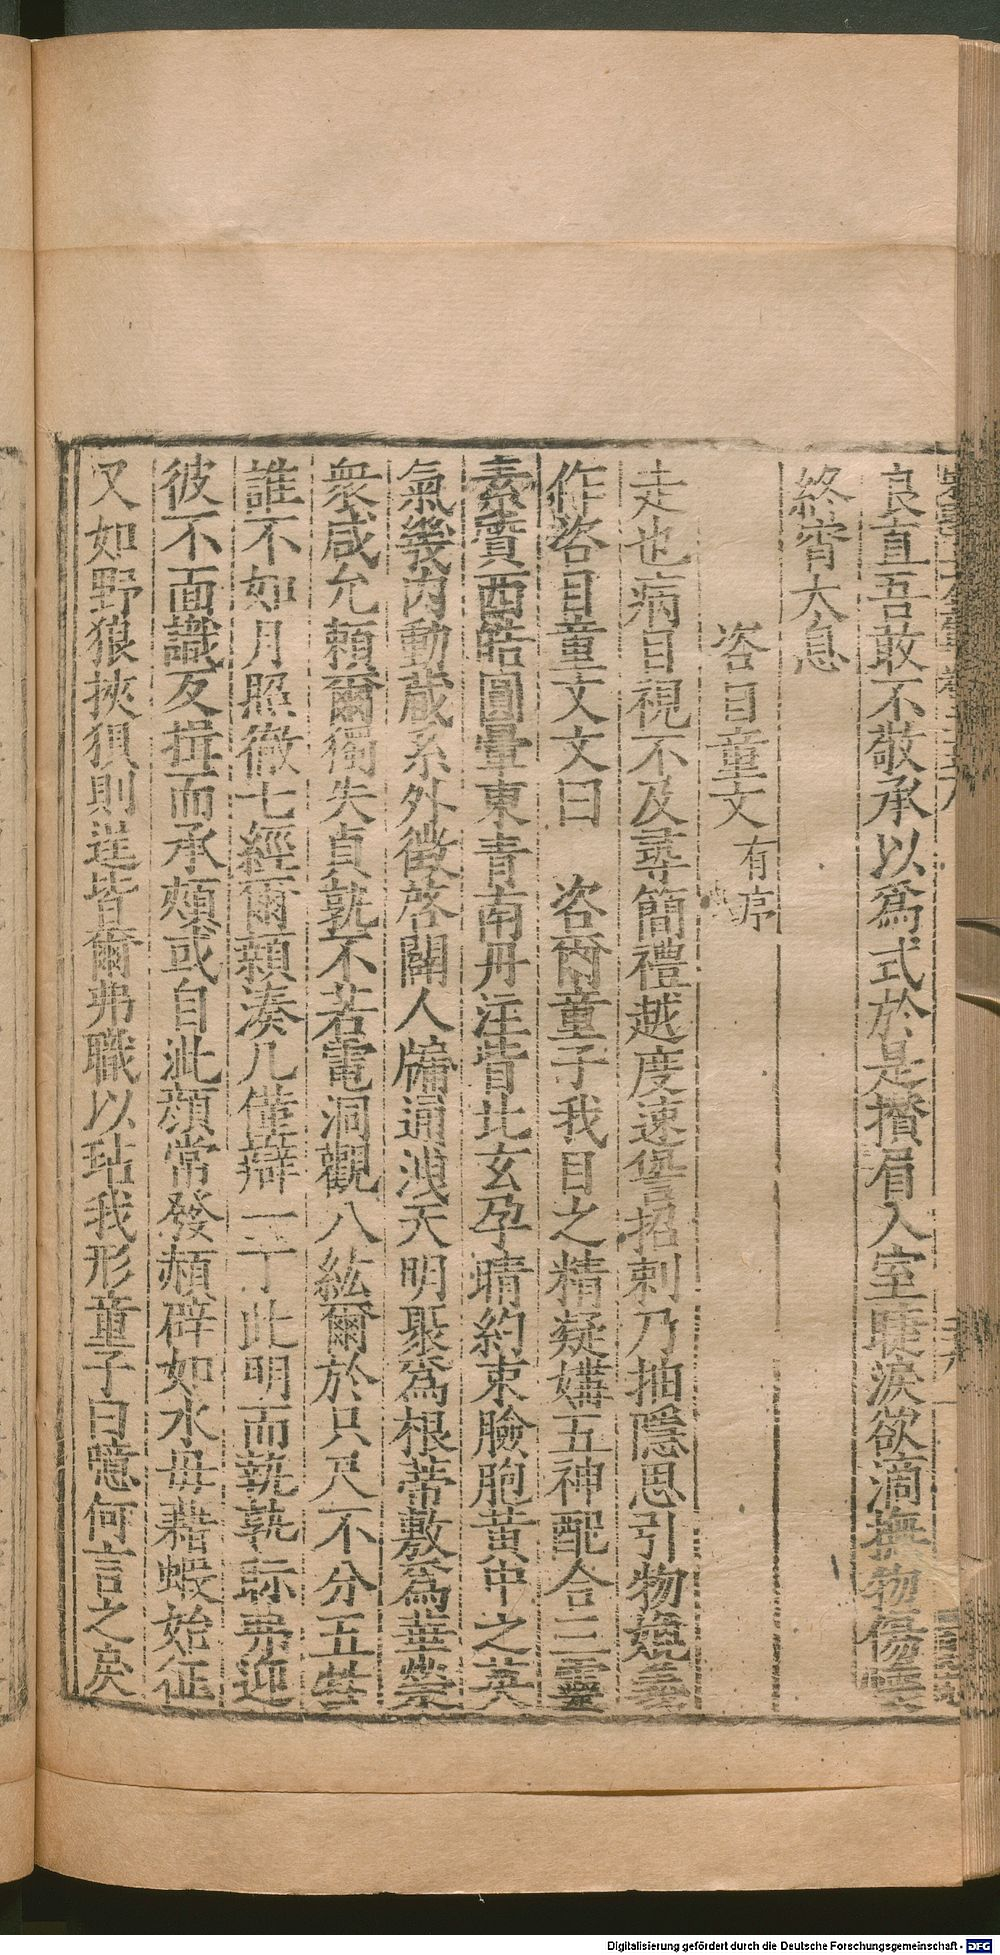 良直吾敢不敬承以爲式於是攅眉入室睫淚欲滴撫物傷懷
終宵太息
咨目童文有序
走也病目視不及尋簡禮越度速咎招刺乃抽隱思引物媲義
作咨目童文文曰 咨爾童子我目之精凝媾五神配合三靈
素賓西皓圓暈東青南丹注眥北玄孕睛約束臉胞黄中之英
氣幾内動蔵系外徵啓闢人牖通洩天明聚爲根蒂敷爲華榮
衆咸允頼爾獨失貞孰不若電洞觀八紘爾於只尺不分五
誰不如月照徹七經爾頼湊几僅辯一丁此明而孰孰眎弗迎
彼不面識反揖而承頰或自泚顔常發頳辟如水母藉蝦始征
又如野狼挾狽則逞皆爾弗職以玷我形童子曰噫何言之戾
Digitalisierung gefördert durch die Deutsche Forschungsgemeinschaft - DFG